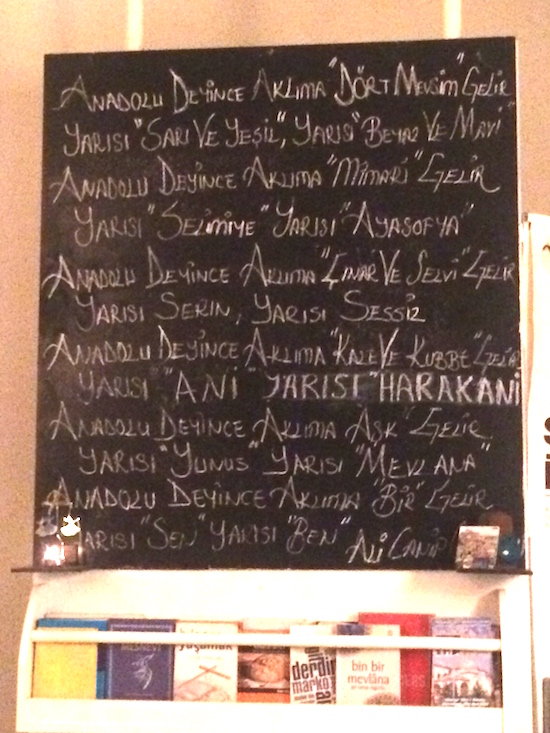 ANADOLU DEYİNCE AKLIMA "DÖRT MEVSİM" GELİR
YARISI "SARI VE YEŞİL", YARISI "BEYAZ VE MAVİ"
ANADOLU DEYİNCE AKLIMA "MİMARİ" GELİR
YARISI "SELİMİYE" YARISI "AYASOFYA"
ANADOLU DEYİNCE AKLIMA "ÇINAR VE SELVİ" GELİR
YARISI SERİN, YARISI SESSİZ
ANADOLU DEYİNCE AKLIMA "KALE VE KUBBE" GELİR
YARISI "ANİ" YARISI "HARAKANİ
ANADOLU DEYİNCE AKLIMA AŞK" GELİR
YARISI "YUNUS" YARISI "MEVLANA"
ANADOLU DEYİNCE AKLIMA "BİR" GELİR
YARISI "SEN" YARISI "BEN"
ALİ CANİP
yaşamak
derdin
marko
bin bir
mevlâna